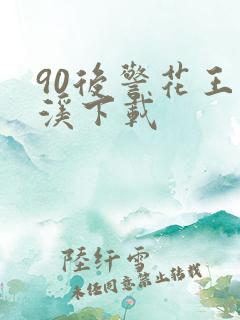 90後警花王
溪下載
陸纤雪
未经同意禁止转载